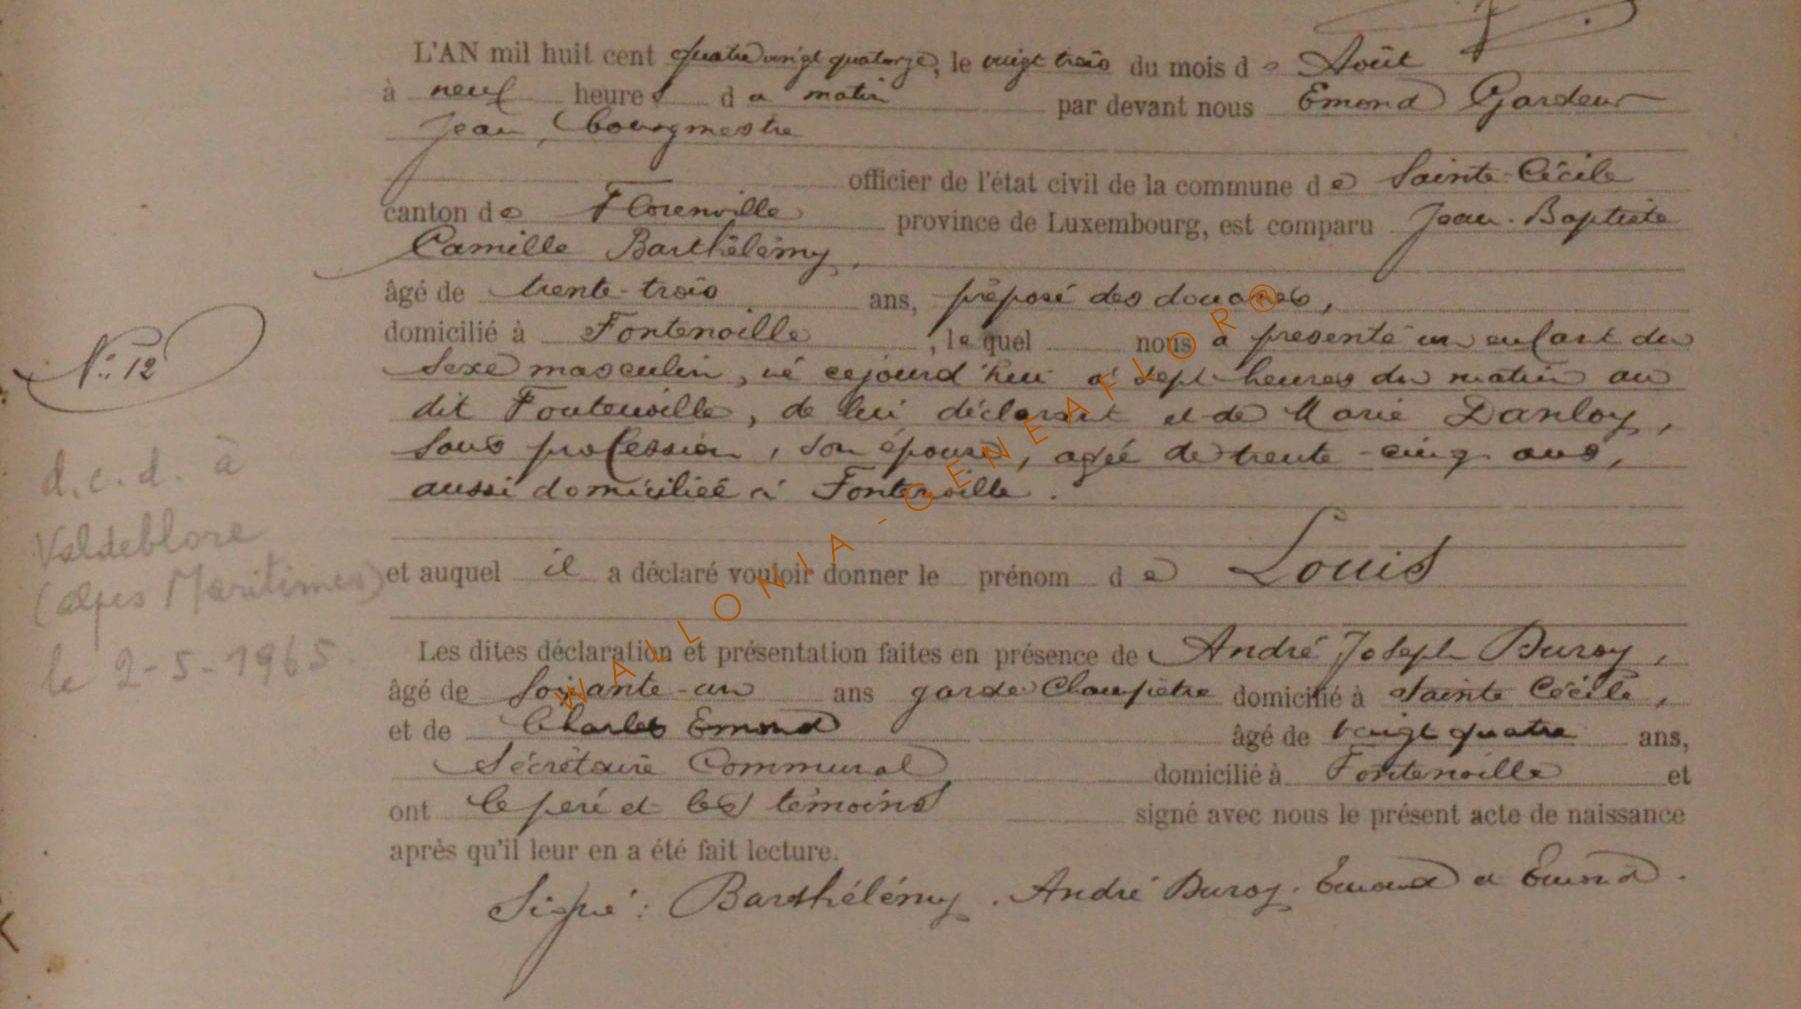 L'AN mil huit cent quatre vingt quatorze, le vingt trois du mois de Août
à neuf heures du matin par devant nous Emond Gardeur
Jean, bourgmestre
officier de l'état civil de la commune de Sainte-Cécile
canton de Florenville province de Luxembourg, est comparu Jean-Baptiste
Camille Barthélémy,
âgé de trente-trois ans, préposé des douanes,
domicilié à Fontenoille, lequel nous a presenté un enfant du
N.: 12
sexe masculin, né cejourd'hui à sept heures du matin au
dit Fontenoille, de lui déclarant et de Marie Danloy,
sans profession, son épouse, agée de trente-cinq ans,
d.c.d. à
aussi domiciliée à Fontenoille.
Valdeblore
(alpes Maritimes)
et auquel il a déclaré vouloir donner le prénom de Louis
le 2-5-1965.
Les dites déclaration et présentation faites en présence de André Joseph Duroy,
âgé de soixante-un ans garde Champêtre domicilié à Sainte Cécile,
et de Charles Emond âgé de vingt quatre ans,
Sécrétaire Communal domicilié à Fontenoille et
ont le père et les témoins signé avec nous le présent acte de naissance
après qu'il leur en a été fait lecture.
Signé: Barthélémy. André Duroy. Emond et Emond.
WALLONIA-GENEAFLOR®